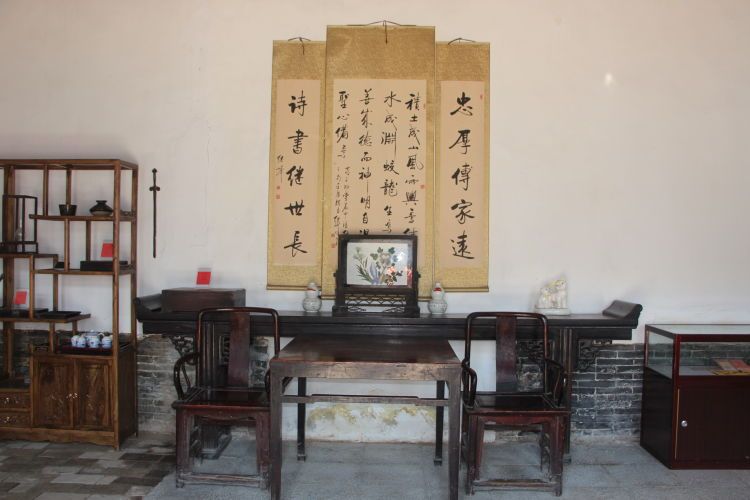 忠厚傳家遠
積土成山風雨興焉積
水成淵蛟龍生焉
善成德而神明自得
聖心備焉
诗書继世長